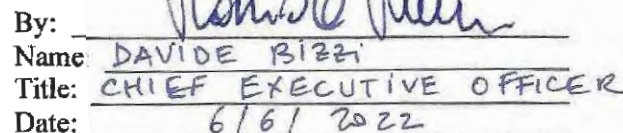 By:
Name: DAVIDE BIZZI
Title: CHIEF EXECUTIVE OFFICER
Date: 6/6/2022